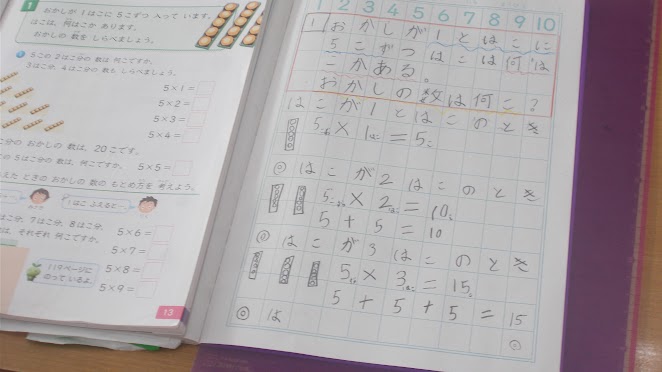 1
おかしが 1はこに 5こずつ 入って います。
はこは、何はこか あります。
おかしの 数を しらべましょう。
5この 2はこ分の 数は 何こですか。
3はこ分、4はこ分の 数も しらべましょう。
5×1=
5×2=
5×3=
5×4=
こ分の おかしの 数は、20こです。
5はこ分の 数は、何こですか。
5×5=
ふえたときの おかしの 数の もとめ方を 考えよう。
1はこ ふえると…
こ分、7はこ分、8はこ分、
は、それぞれ 何こですか。
5×6=
5×7=
5×8=
5×9=
119ページに
のって いるよ。
13
1 2 3 4 5 6 7 8 9 10
1 おかしが1とはこに
5こずつ はこは何は
こかある。
おかしの数は何こ?
はこが1とはこのとき
5×1=5こ
◎はこが2はこのとき
5×2=10こ
5+5=10
◎はこが3はこのとき
5×3=15こ
5+5+5=15
◎は